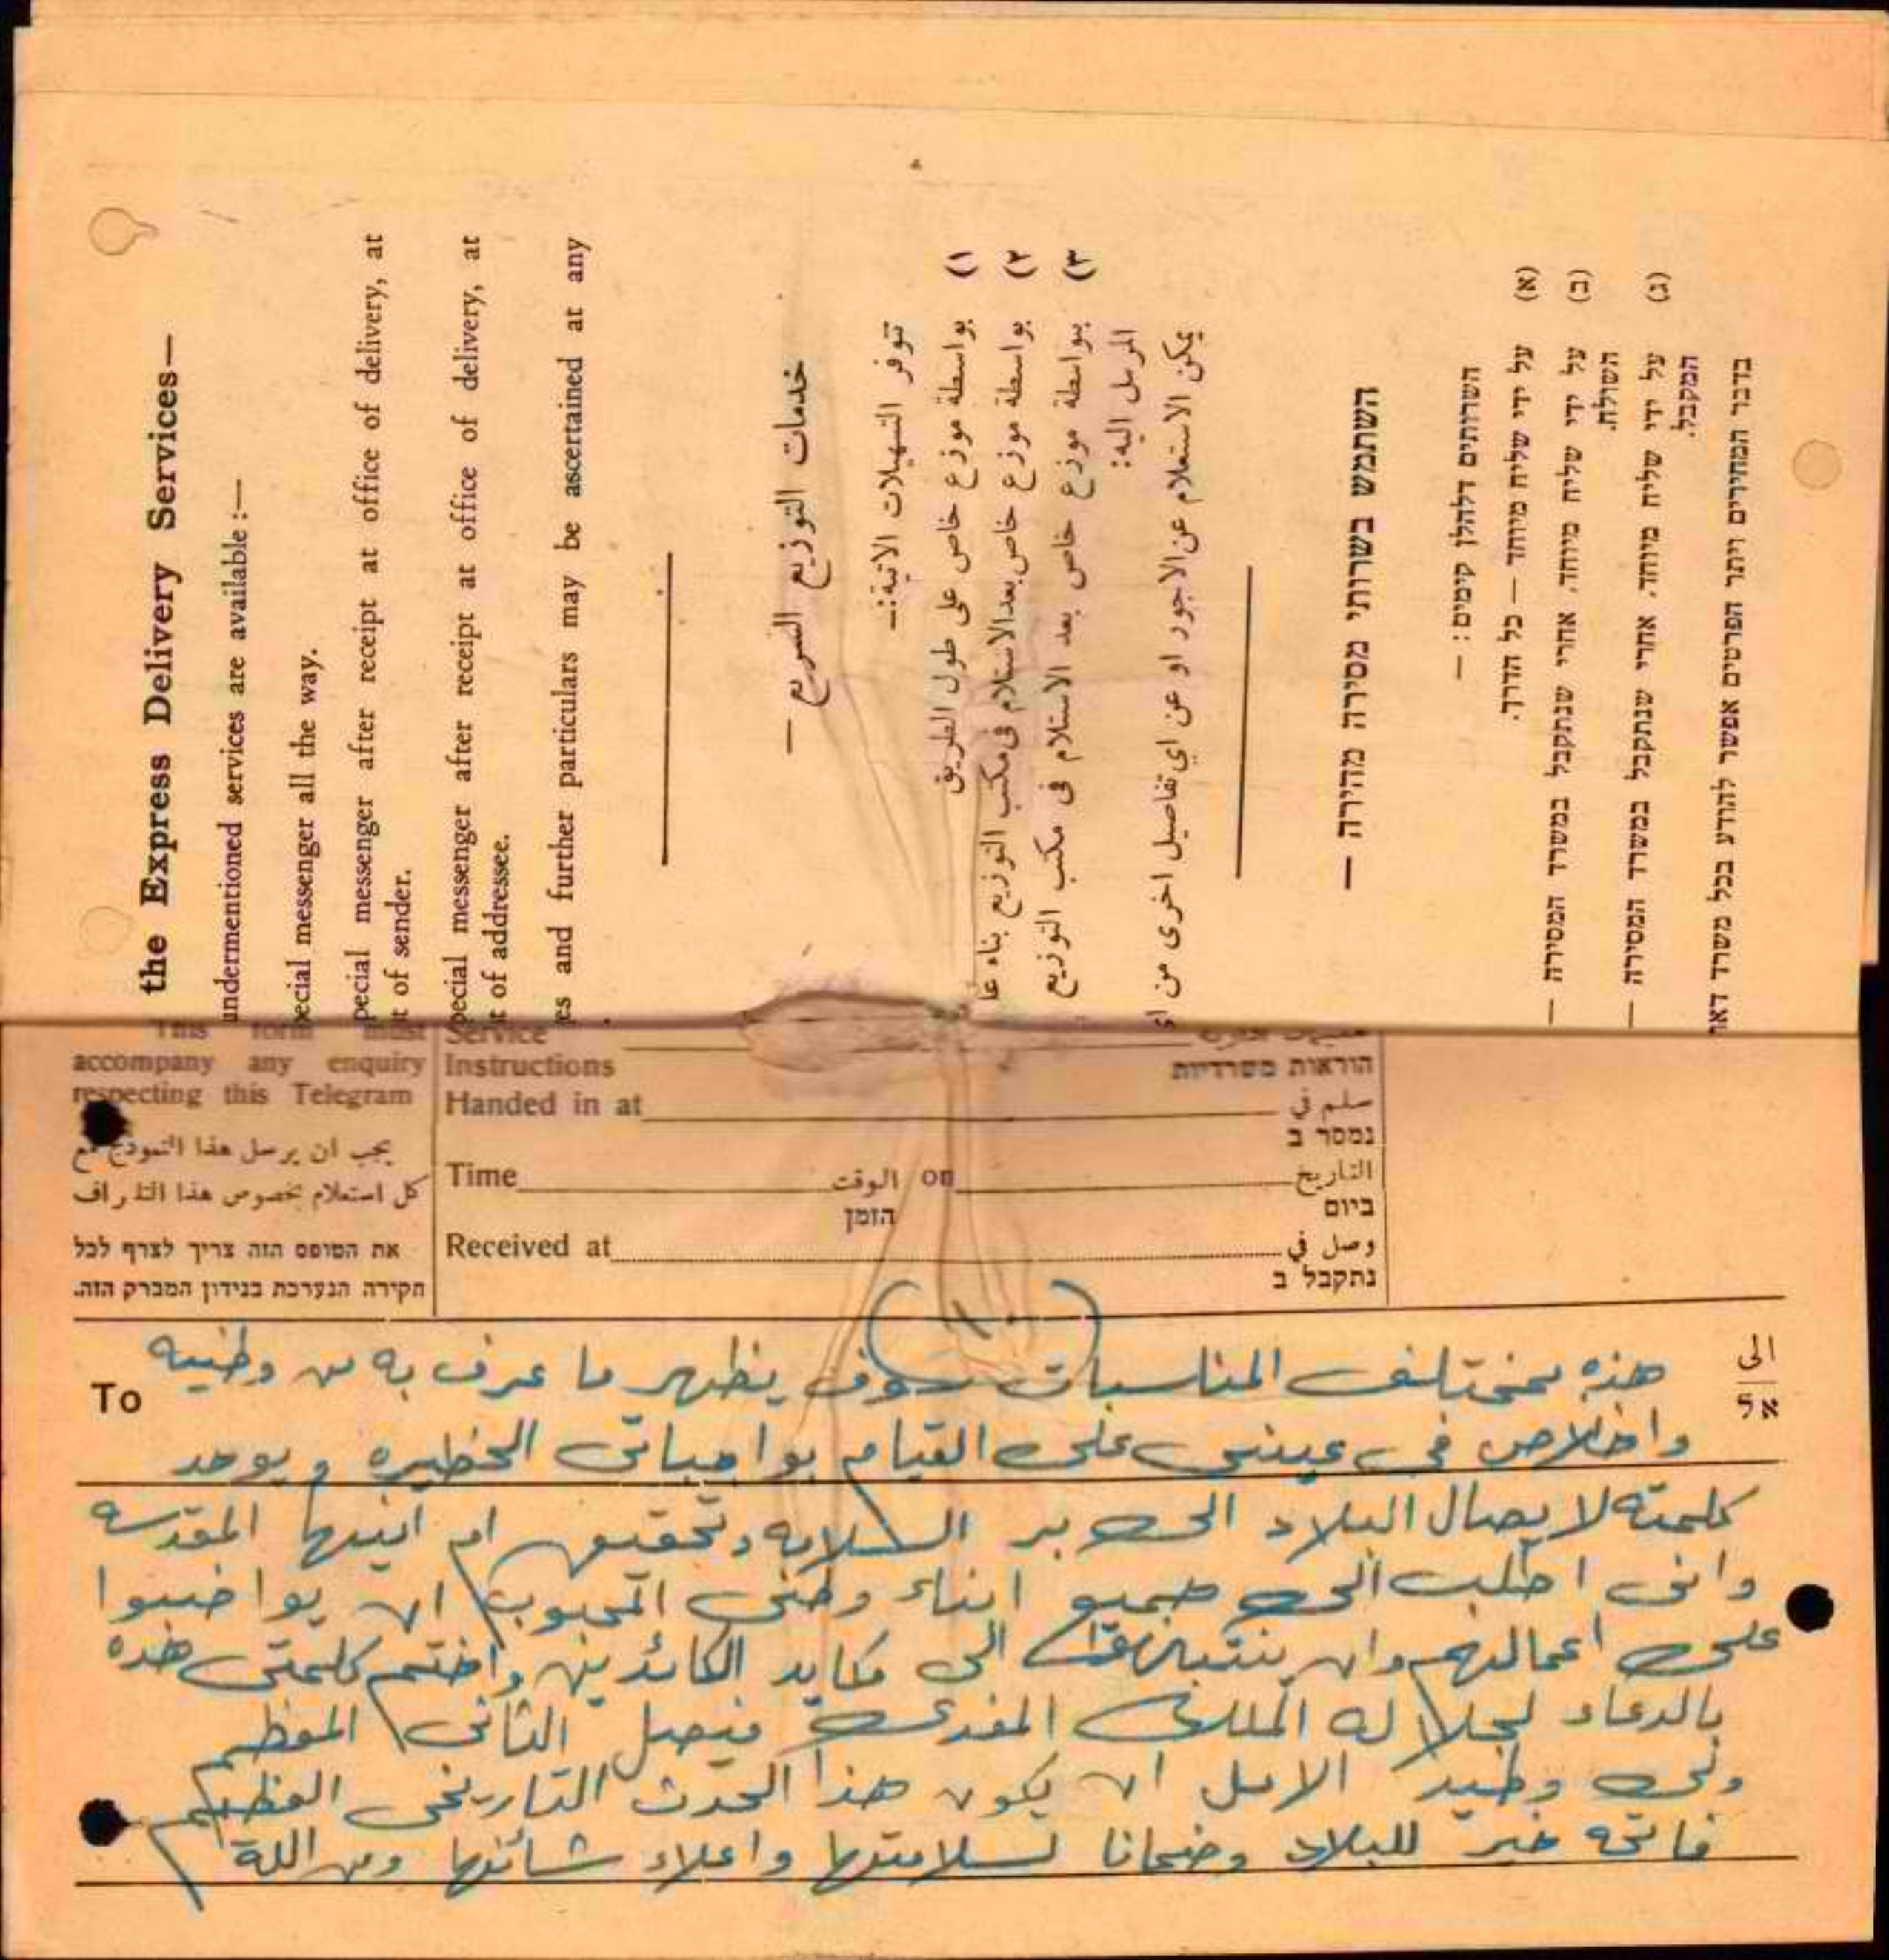 the Express Delivery Services—
undermentioned services are available :—
pecial messenger all the way.
pecial messenger after receipt at office of delivery, at
t of sender.
pecial messenger after receipt at office of delivery, at
t of addressee.
es and further particulars may be ascertained at any
خدمات التوزيع السريع —
توفر التسهيلات الاتية:—
١) بواسطة موزع خاص على طول الطريق
٢) بواسطة موزع خاص بعد الاستلام فى مكتب التوزيع بناء عا
٣) بواسطة موزع خاص بعد الاستلام فى مكتب التوزيع
المرسل اليه:
يمكن الاستعلام عن الاجور او عن اي تفاصيل اخرى من ا
השתמש בשרותי מסירה מהירה —
השרותים דלהלן קימים : —
(א) על ידי שליח מיוחד — כל הדרך.
(ב) על ידי שליח מיוחד, אחרי שנתקבל במשרד המסירה —
השולח.
(ג) על ידי שליח מיוחד, אחרי שנתקבל במשרד המסירה —
המקבל.
בדבר המחירים ויתר הפרטים אפשר להודע בכל משרד דאר
This form must
accompany any enquiry
respecting this Telegram
يجب ان يرسل هذا النموذج مع
كل استعلام بخصوص هذا التلراف
את הטופס הזה צריך לצרף לכל
חקירה הנערכת בנידון המברק הזה.
Service
Instructions
הוראות משרדיות
Handed in at سلم في
נמסר ב
Time الوقت on التاريخ
הזמן ביום
Received at وصل في
נתקבל ב
(١٠)
To الى
אל
هذه بمختلف المناسبات سوف يظهر ما عرف به من وطنيه
واخلاص في عينى على القيام بواجباتى الخطيره و يوحد
كلمته لايصال البلاد الى بر السلامه وتحقيق امانيها المقدسه
وانى اطلب الى جميع ابناء وطنى المحبوب ان يواضبوا
على اعمالهم وان ينتبهوا الى مكايد الكائدين واختم كلمتى هذه
بالدعاء لجلالة الملك المفدى فيصل الثانى المعظم
ولى وطيد الامل ان يكون هذا الحدث التاريخى العظيم
فاتحه خير للبلاد وضمانا لسلامتها واعلاء شائنها ومن الله